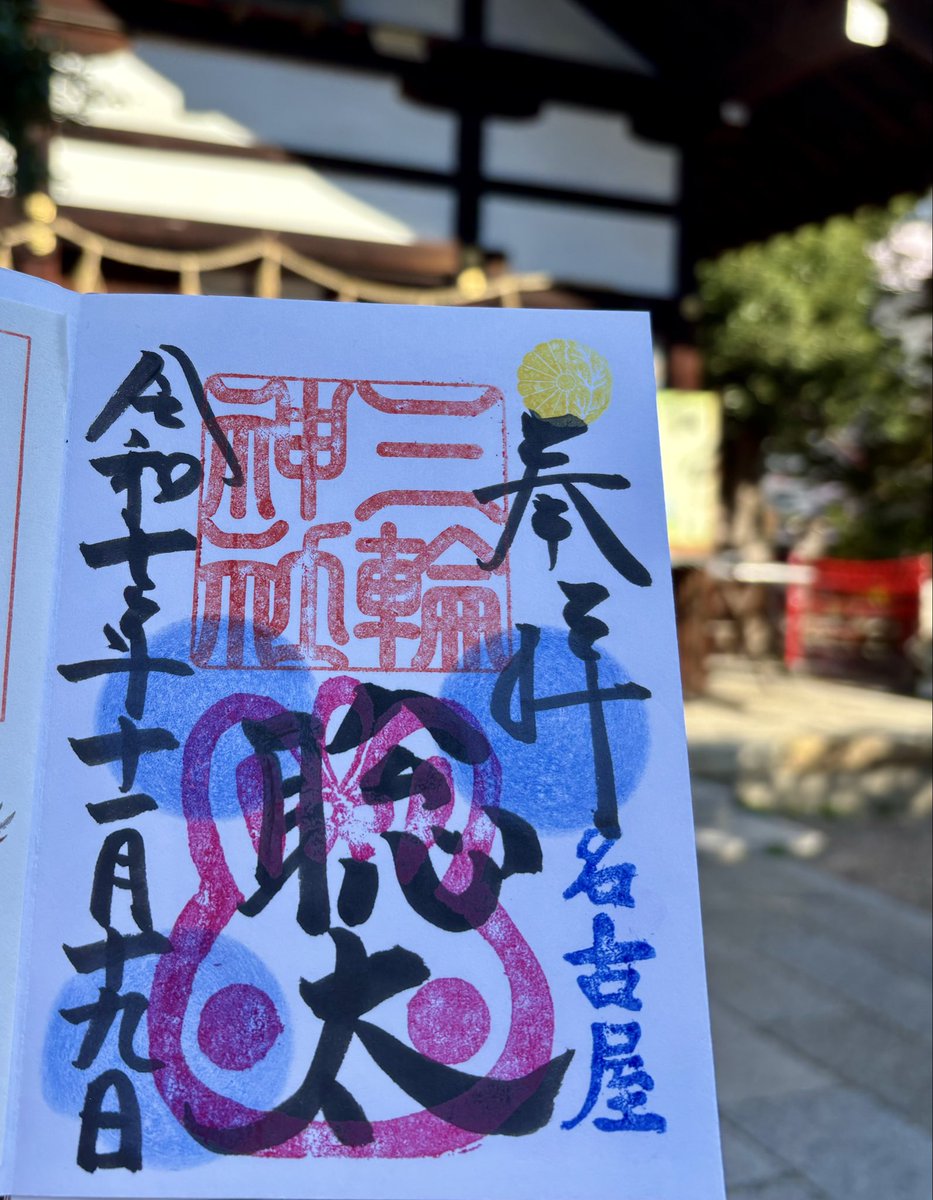 奉拝
名古屋
三輪
神社
聡太
令和七年十一月十九日